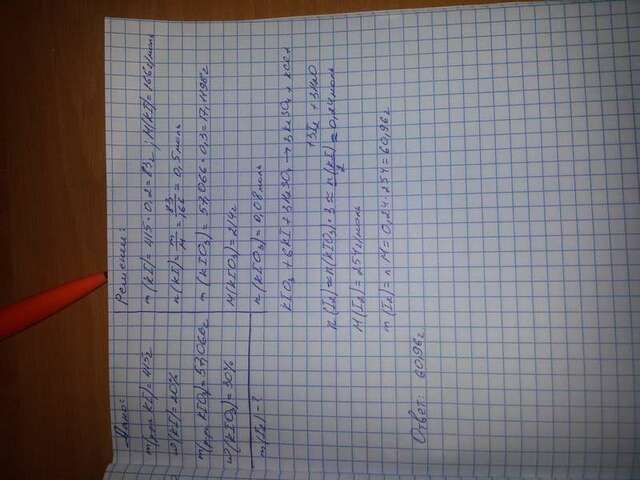 Дано:
m(р-ра KI)=415г
ω(KI)=20%
m(р-ра KIO₃)=57,066г
ω(KIO₃)=30%
m(I₂)-?
Решение:
m(KI)=415·0,2=83г; M(KI)=166г/моль
n(KI)=m/M=83/166=0,5моль
m(KIO₃)=57,066·0,3=17,1198г
M(KIO₃)=214г
n(KIO₃)=0,08моль
KIO₃+6KI+3H₂SO₄→3K₂SO₄+KCl+
+3I₂+3H₂O
n(I₂)=n(KIO₃)·3=n(KI)/2=0,24моль
M(I₂)=254г/моль
m(I₂)=n·M=0,24·254=60,96г
Ответ: 60,96г